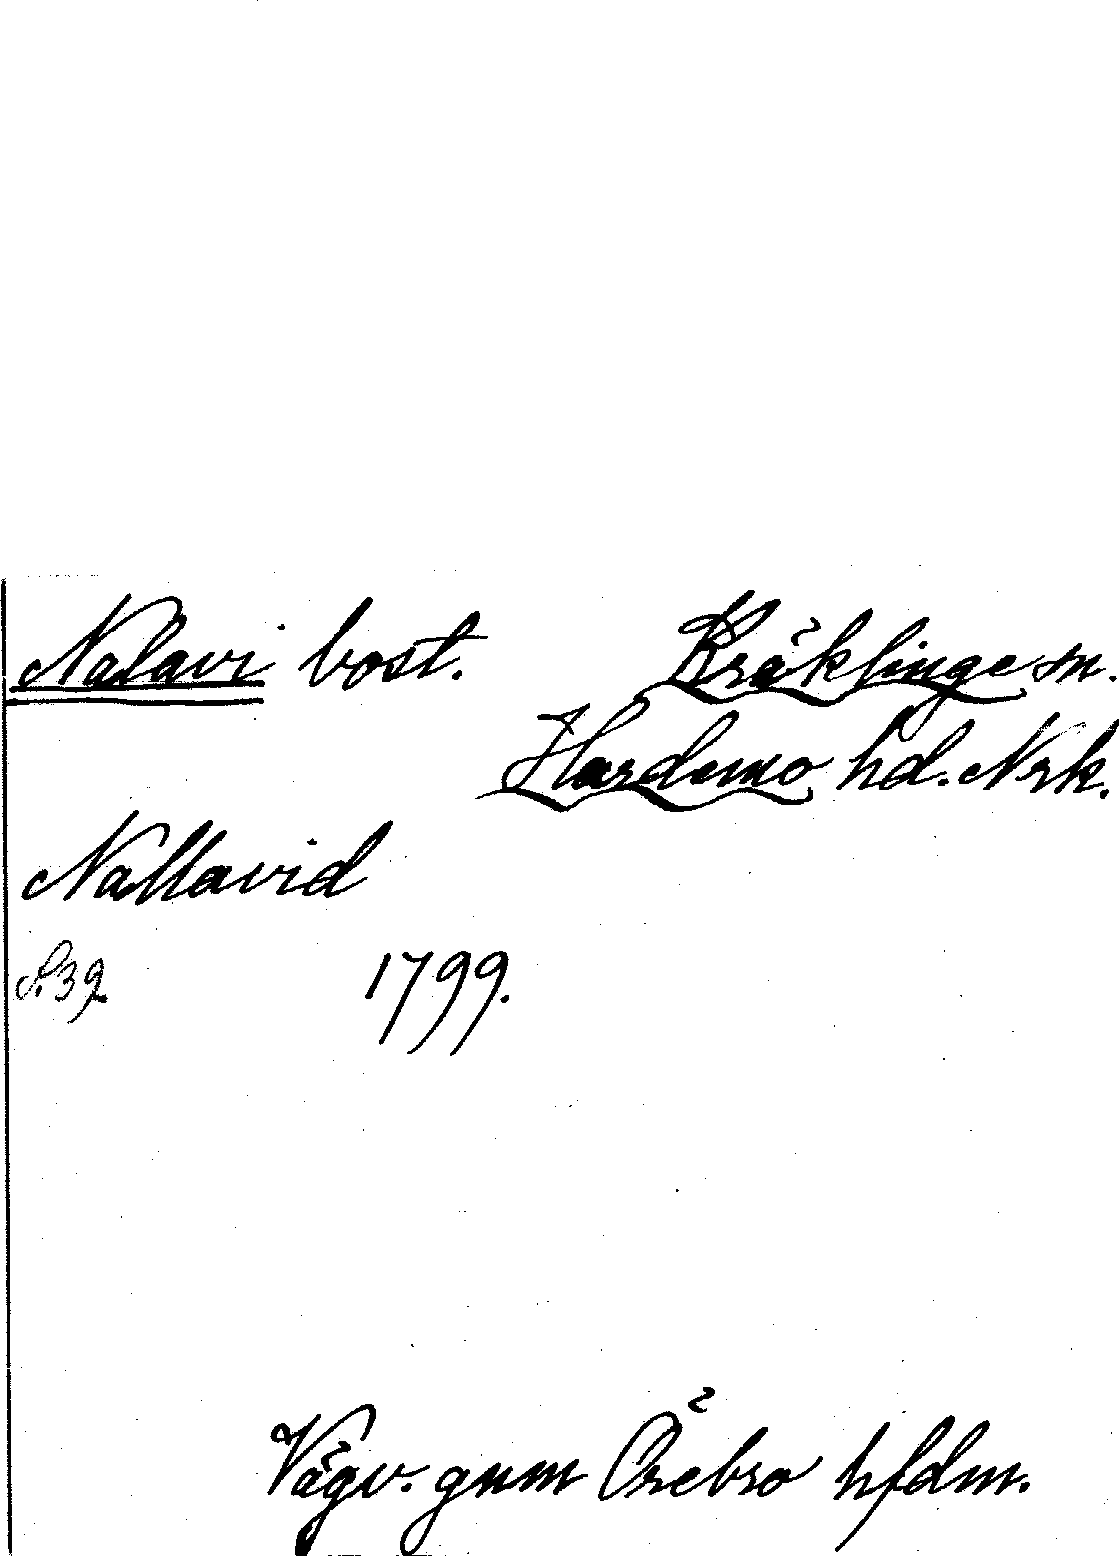 Nalavi bost. Kräklinge sn.
Hardemo hd. Nrk.
Nallavid
S. 39 1799.
Vägv. gnm Örebro hfdm.